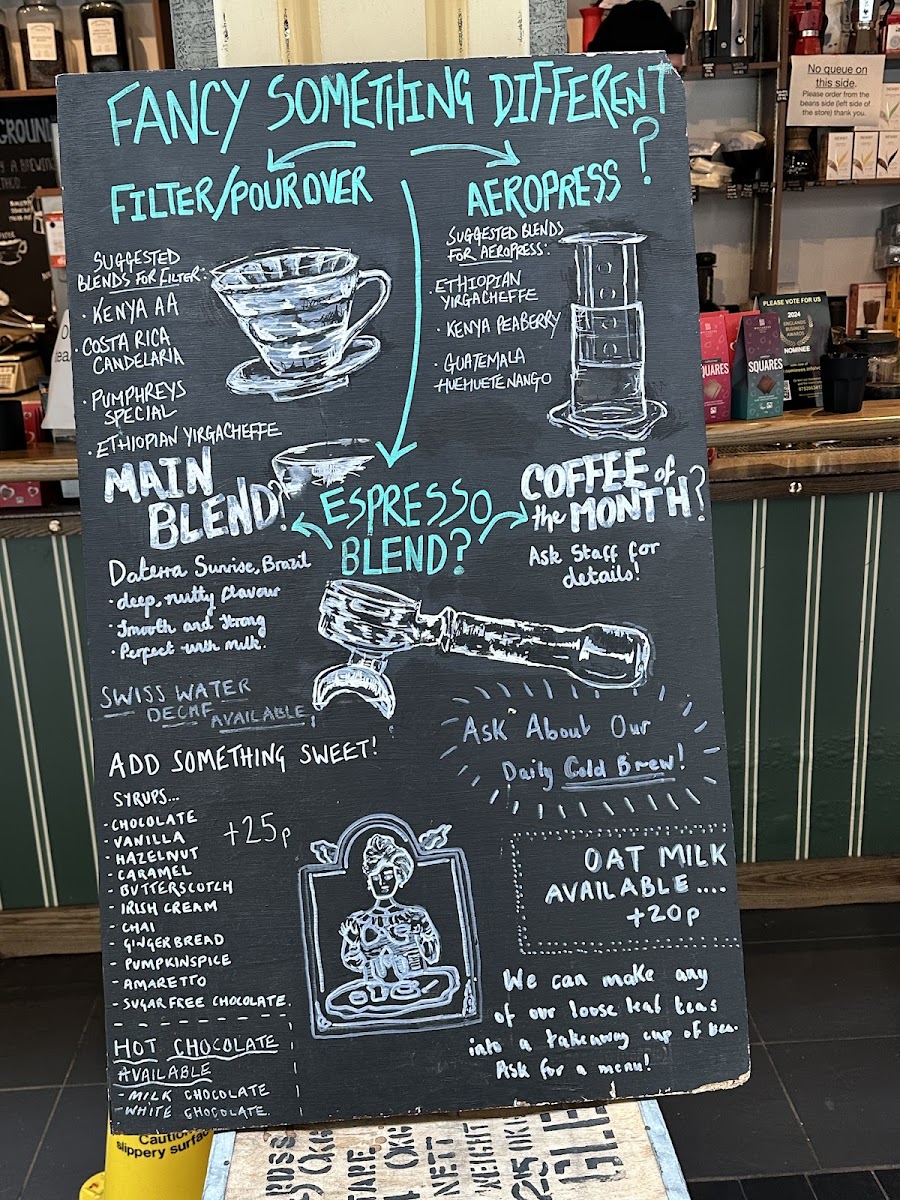 FANCY SOMETHING DIFFERENT
?
FILTER/POUROVER
SUGGESTED
BLENDS FOR FILTER:
· KENYA AA
· COSTA RICA
CANDELARIA
· PUMPHREYS
SPECIAL
· ETHIOPIAN YIRGACHEFFE
AEROPRESS
SUGGESTED BLENDS
FOR AEROPRESS:
· ETHIOPIAN
YIRGACHEFFE
· KENYA PEABERRY
· GUATEMALA
HUEHUETENANGO
ESPRESSO
BLEND?
MAIN
BLEND?
Daterra Sunrise, Brazil
· deep, nutty flavour
· Smooth and Strong
· Perfect with milk.
COFFEE of
the MONTH?
Ask Staff for
details!
SWISS WATER
DECAF AVAILABLE!
Ask About Our
Daily Cold Brew!
ADD SOMETHING SWEET!
SYRUPS...
+25p
- CHOCOLATE
- VANILLA
- HAZELNUT
- CARAMEL
- BUTTERSCOTCH
- IRISH CREAM
- CHAI
- GINGERBREAD
- PUMPKINSPICE
- AMARETTO
- SUGAR FREE CHOCOLATE.
HOT CHOCOLATE
AVAILABLE
- MILK CHOCOLATE
- WHITE CHOCOLATE.
OAT MILK
AVAILABLE....
+20p
We can make any
of our loose leaf teas
into a takeaway cup of tea.
Ask for a menu!
No queue on
this side.
Please order from the
beans side (left side of
the store) thank you.
PLEASE VOTE FOR US
2024
ENGLANDS
BUSINESS
AWARDS
NOMINEE
SQUARES
SQUARES
GROUN
Caution
slippery surfa
NETT
WEIGHT